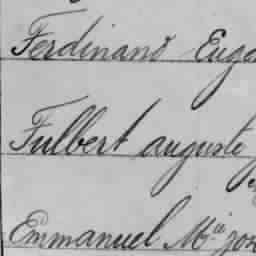 Ferdinand Euge
Fulbert auguste
Emmanuel M.ie jos